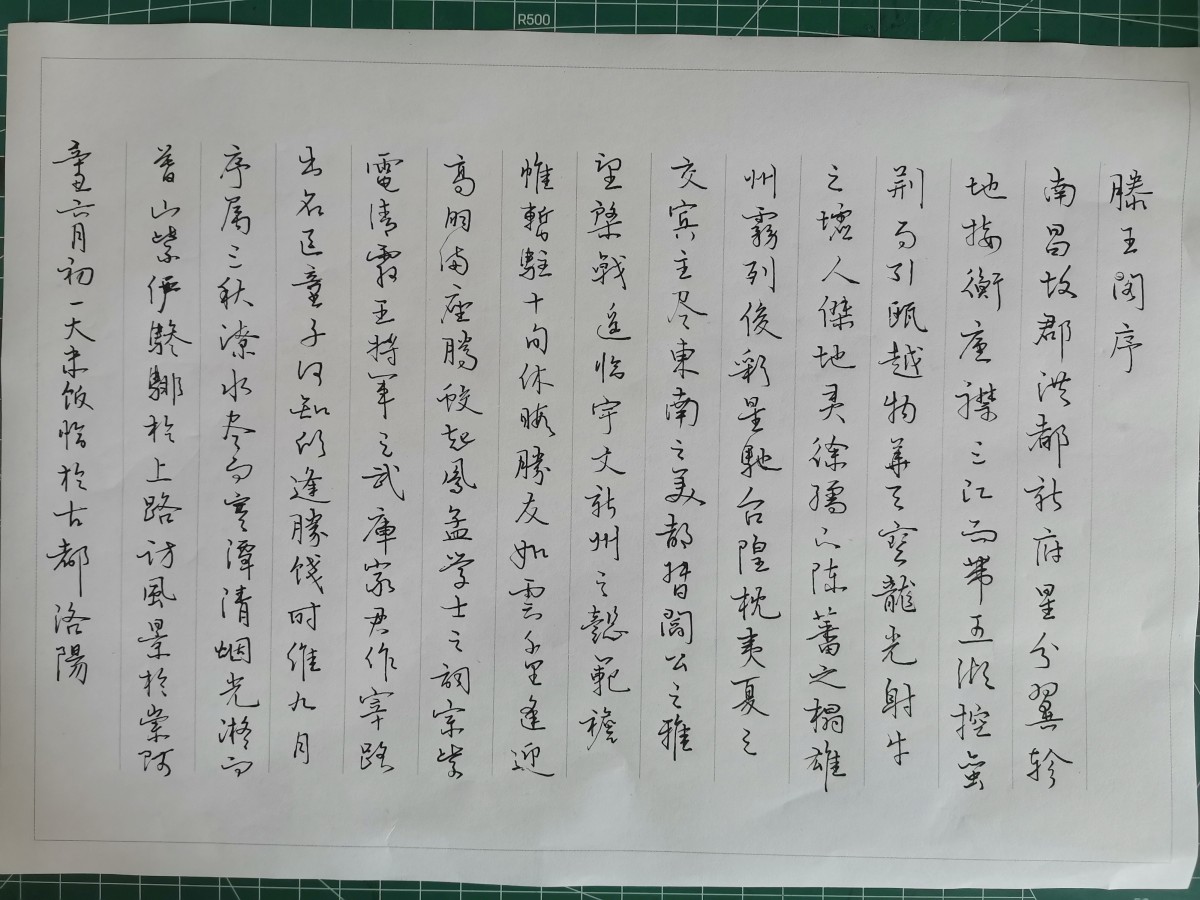 R500
滕王阁序
南昌故郡洪都新府星分翼轸
地接衡庐襟三江而带五湖控蛮
荆而引瓯越物华天宝龙光射牛
之墟人傑地灵徐孺下陈蕃之榻雄
州霧列俊彩星馳台隍枕夷夏之
交宾主尽東南之美都督閻公之雅
望棨戟遥临宇文新州之懿範襜
帷暫駐十旬休暇勝友如雲千里逢迎
高朋满座騰蛟起鳳孟学士之詞宗紫
電清霜王将軍之武庫家君作宰路
出名区童子何知躬逢勝餞时维九月
序属三秋潦水尽而寒潭清烟光凝而
暮山紫俨骖騑於上路访風景於崇阿
六月初一大未饭临於古都洛陽